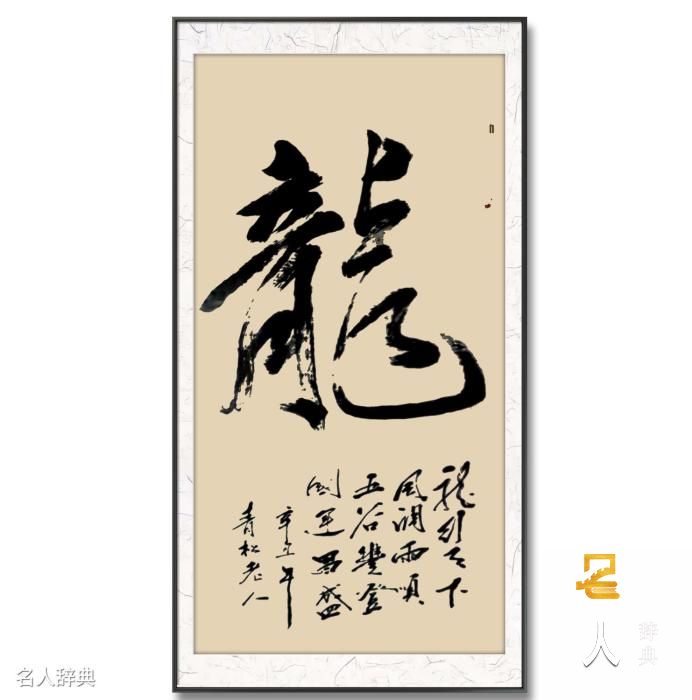 龍
龍引天下
風調雨順
五谷豐登
國運昌盛
辛丑年
青松老人
名人辞典
名
人
辞典